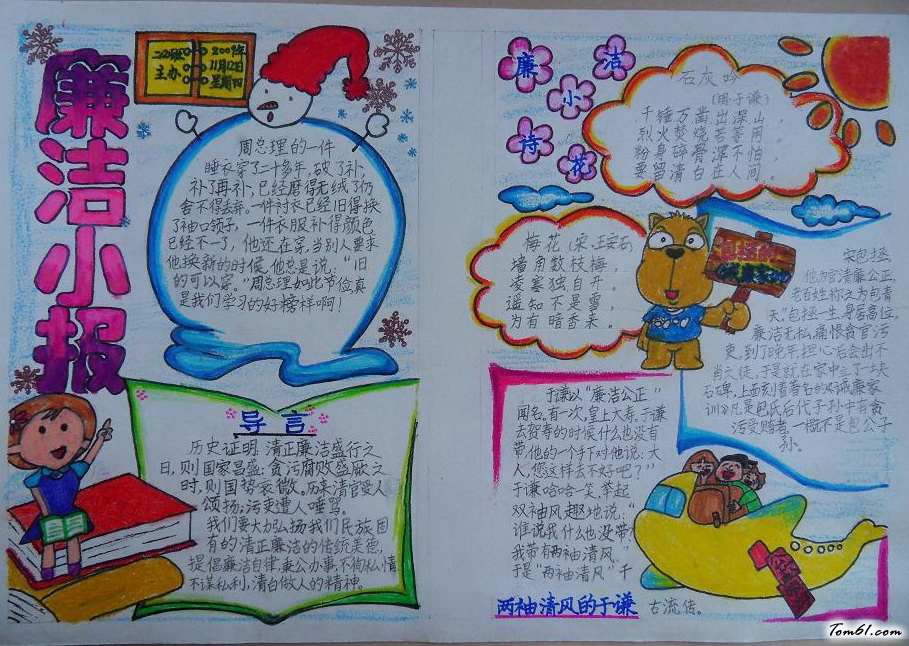 廉洁小报
二(2)班
主办
2009年
11月12日
星期四
周总理的一件
睡衣穿了二十多年，破了补，
补了再补，已经磨得无绒了仍
舍不得丢弃。一件衬衣已经旧得换
了袖口领子，一件衣服补得颜色
已经不一了，他还在穿，当别人要求
他换新的时候，他总是说：“旧
的可以穿。”周总理如此节俭真
是我们学习的好榜样啊！
导言
历史证明，清正廉洁盛行之
日，则国家昌盛；贪污腐败盛厥之
时，则国势衰微。历来清官受人
颂扬；污吏遭人唾骂。
我们要大力弘扬我们民族固
有的清正廉洁的传统美德，
提倡廉洁自律，秉公办事，不徇私情
不谋私利，清白做人的精神。
廉洁小诗花
石灰吟
(明·于谦)
千锤万凿出深山，
烈火焚烧若等闲，
粉身碎骨浑不怕，
要留清白在人间。
梅花(宋·王安石)
墙角数枝梅，
凌寒独自开。
遥知不是雪，
为有暗香来。
宋包拯
他为官清廉公正，
老百姓称之为包青
天。包拯一生，身居高位，
廉洁无私，痛恨贪官污
吏，到了晚年，担心后会出不
肖之徒，于是就在家中立了一块
石碑，上面刻着著名的《诫廉家
训》凡是包氏后代子孙中有贪
污受贿者，一概不是包公子
孙。
于谦以“廉洁公正”
闻名。有一次，皇上大寿，于谦
去贺寿的时候什么也没有
带，他的一个手下对他说：大
人，您这样去不好吧？”
于谦哈哈一笑，举起
双袖风趣地说：“
谁说我什么也没带？
我带有两袖清风。”
于是“两袖清风”千
古流传。
两袖清风的于谦
Tom61.com